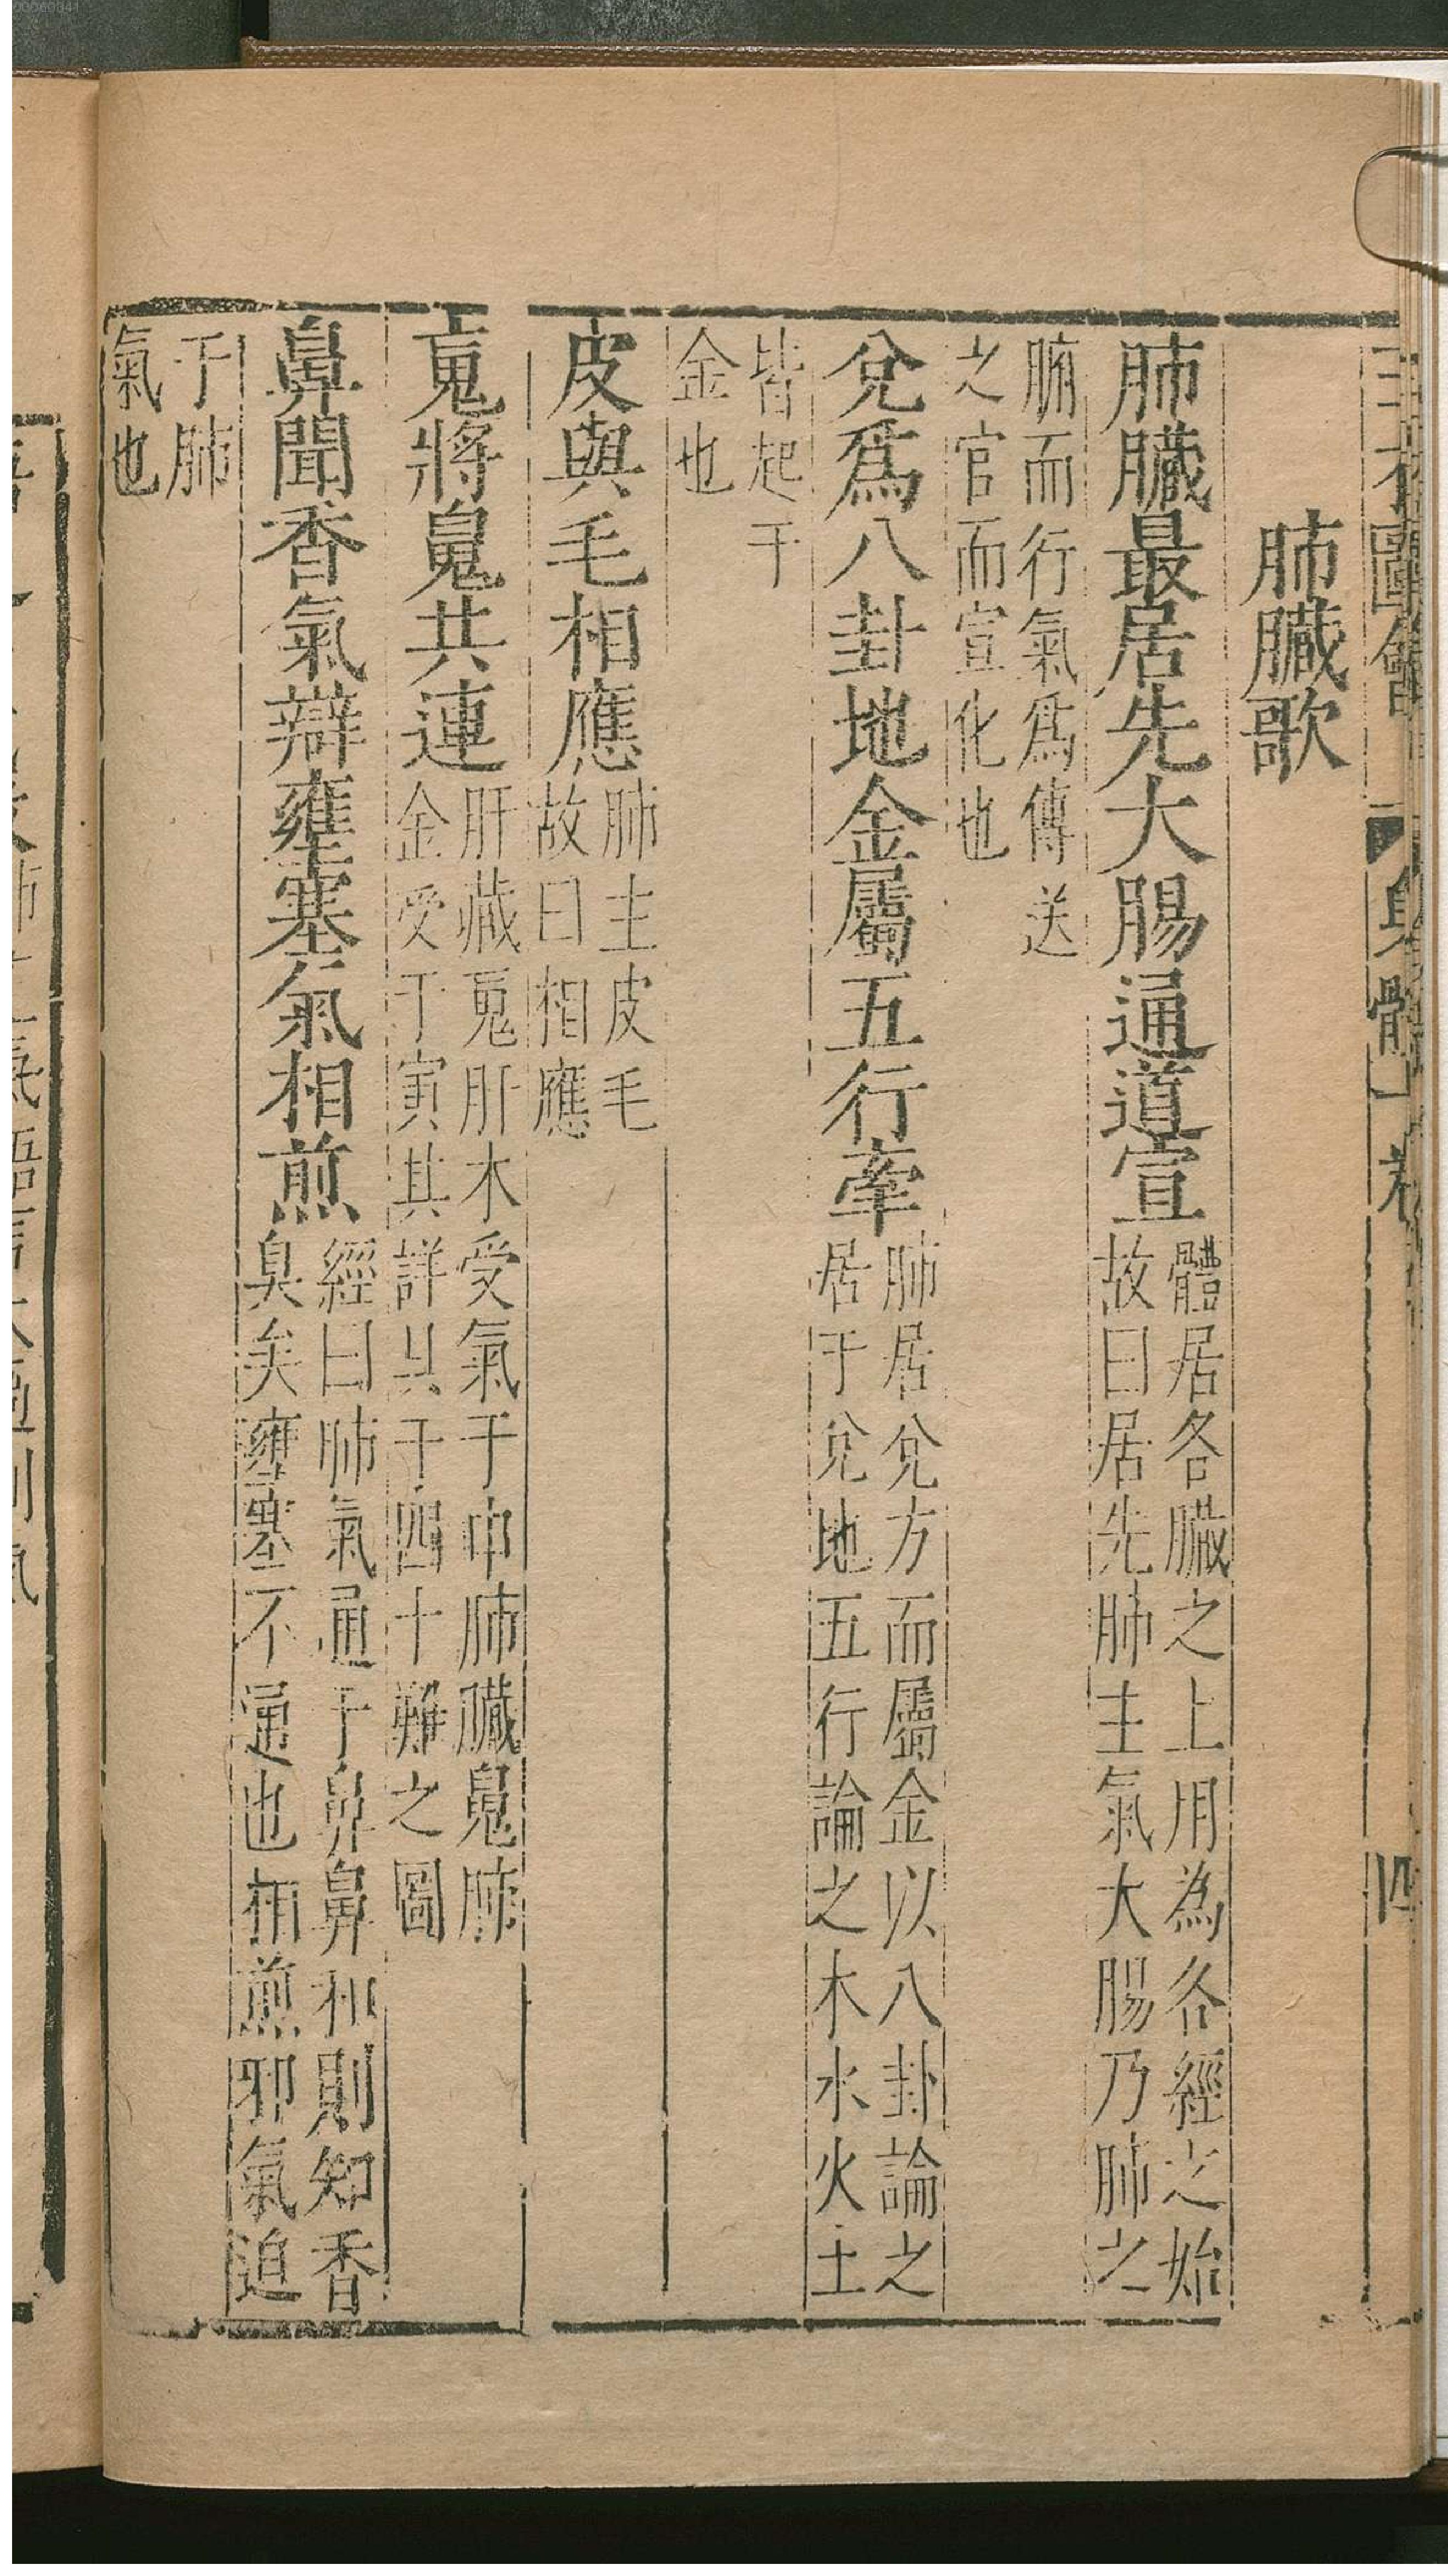 三才圖會 身體一卷 四
肺臟歌
肺臟最居先大腸通道宣體居各臟之上用為各經之始
故曰居先肺主氣大腸乃肺之
腑而行氣爲傳送
之官而宣化也
兌爲八卦地金屬五行牽肺居兌方而屬金以八卦論之
居于兌地五行論之木水火土
皆起于
金也
皮與毛相應肺主皮毛
故曰相應
䰟將䰟共連肝藏䰟肝木受氣于申肺臟䰟肺
金受于寅其詳具于四十難之圖
鼻聞香氣辯壅塞氣相煎經曰肺氣通于鼻鼻和則知香
臭矣壅塞不通也相煎邪氣迫
于肺
氣也